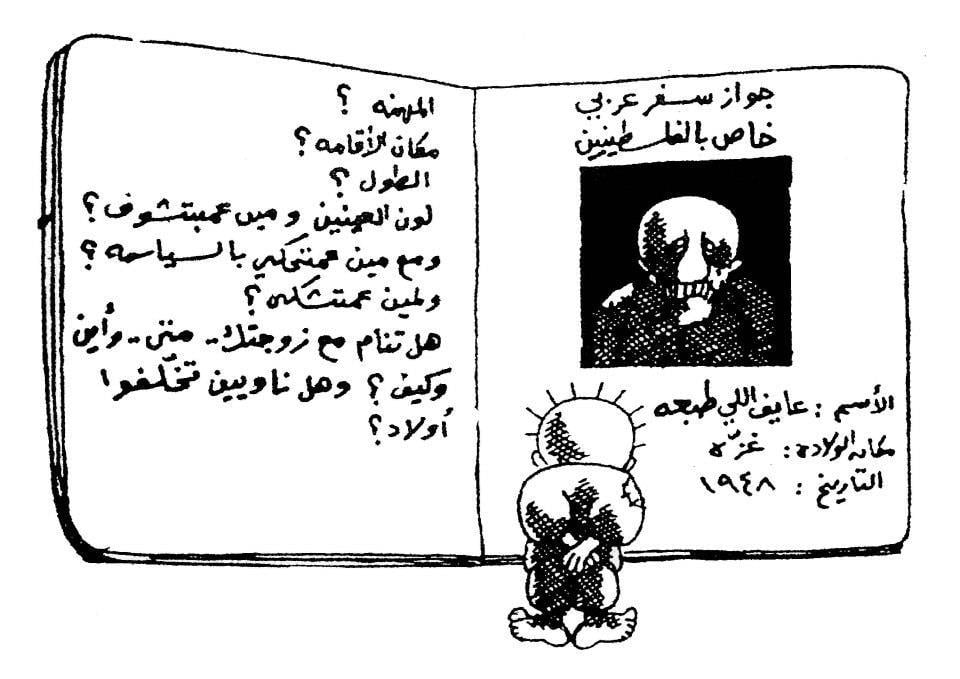 جواز سفر عربي
خاص بالفلسطينيين
الأسم : عايف اللي طبعه
مكان الولادة : غزّة
التاريخ : ١٩٤٨
المهنه ؟
مكان الأقامه ؟
الطول ؟
لون العينين و مين عمبتشوف ؟
ومع مين عمتحكي بالسياسه ؟
ولمين عمتشكي ؟
هل تنام مع زوجتك .. متى .. وأين
وكيف ؟ وهل ناويين تخلّفوا
أولاد ؟